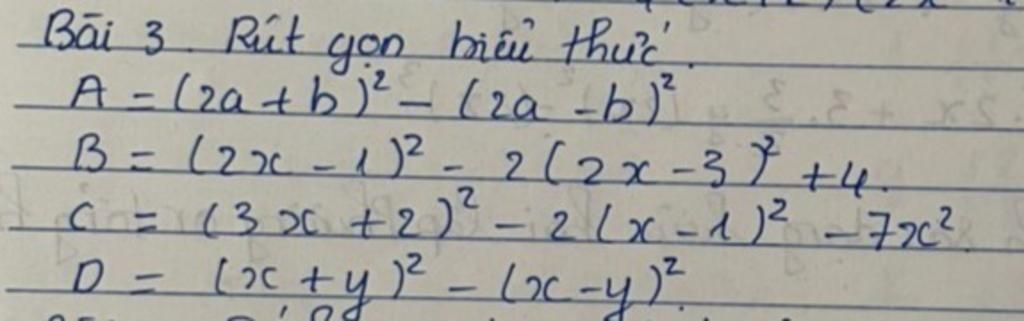 Bài 3. Rút gọn biểu thức.
A = (2a + b)² - (2a - b)²
B = (2x - 1)² - 2(2x - 3)² + 4.
C = (3x + 2)² - 2(x - 1)² - 7x²
D = (x + y)² - (x - y)².